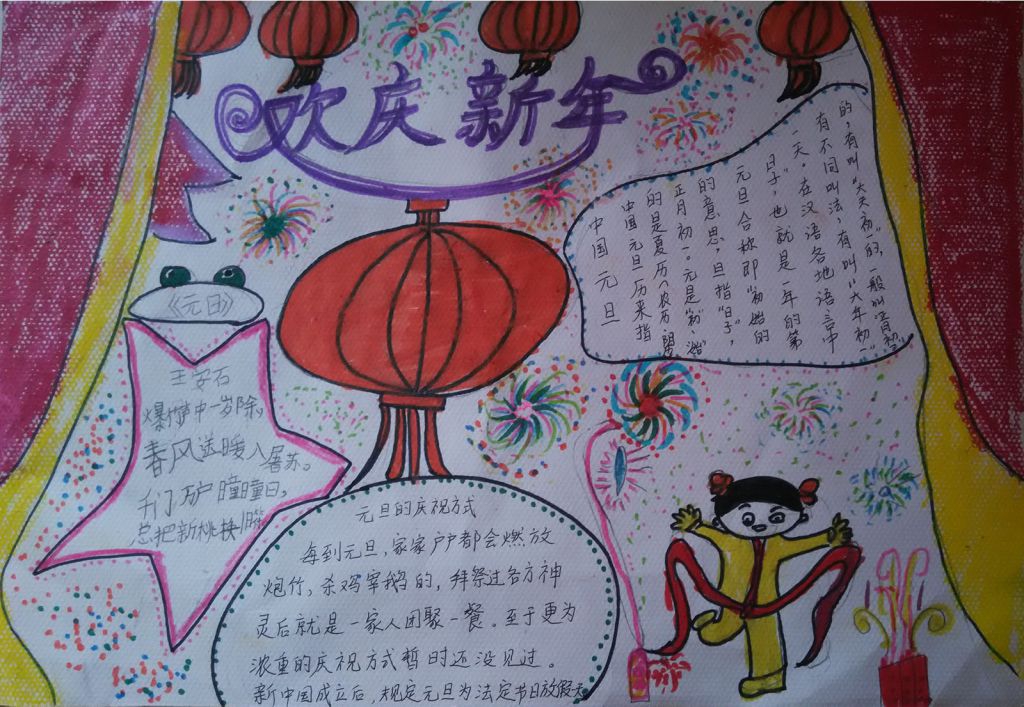 欢庆新年
《元日》
王安石
爆竹声中一岁除。
春风送暖入屠苏。
千门万户曈曈日,
总把新桃换旧符
中国元旦
中国元旦历来指
的是夏历(农历、阴
正月初一。元是"初""始"
的意思,旦指"日子",
元旦合称即"初始的
日子",也就是一年的第
一天。在汉语各地语言中
有不同叫法,有叫"大年初一"
的,有叫"大天初一"的,一般叫"正月初一"
元旦的庆祝方式
每到元旦,家家户户都会燃放
炮竹,杀鸡宰鹅的,拜祭过各方神
灵后就是一家人团聚一餐。至于更为
浓重的庆祝方式暂时还没见过。
新中国成立后,规定元旦为法定节日放假